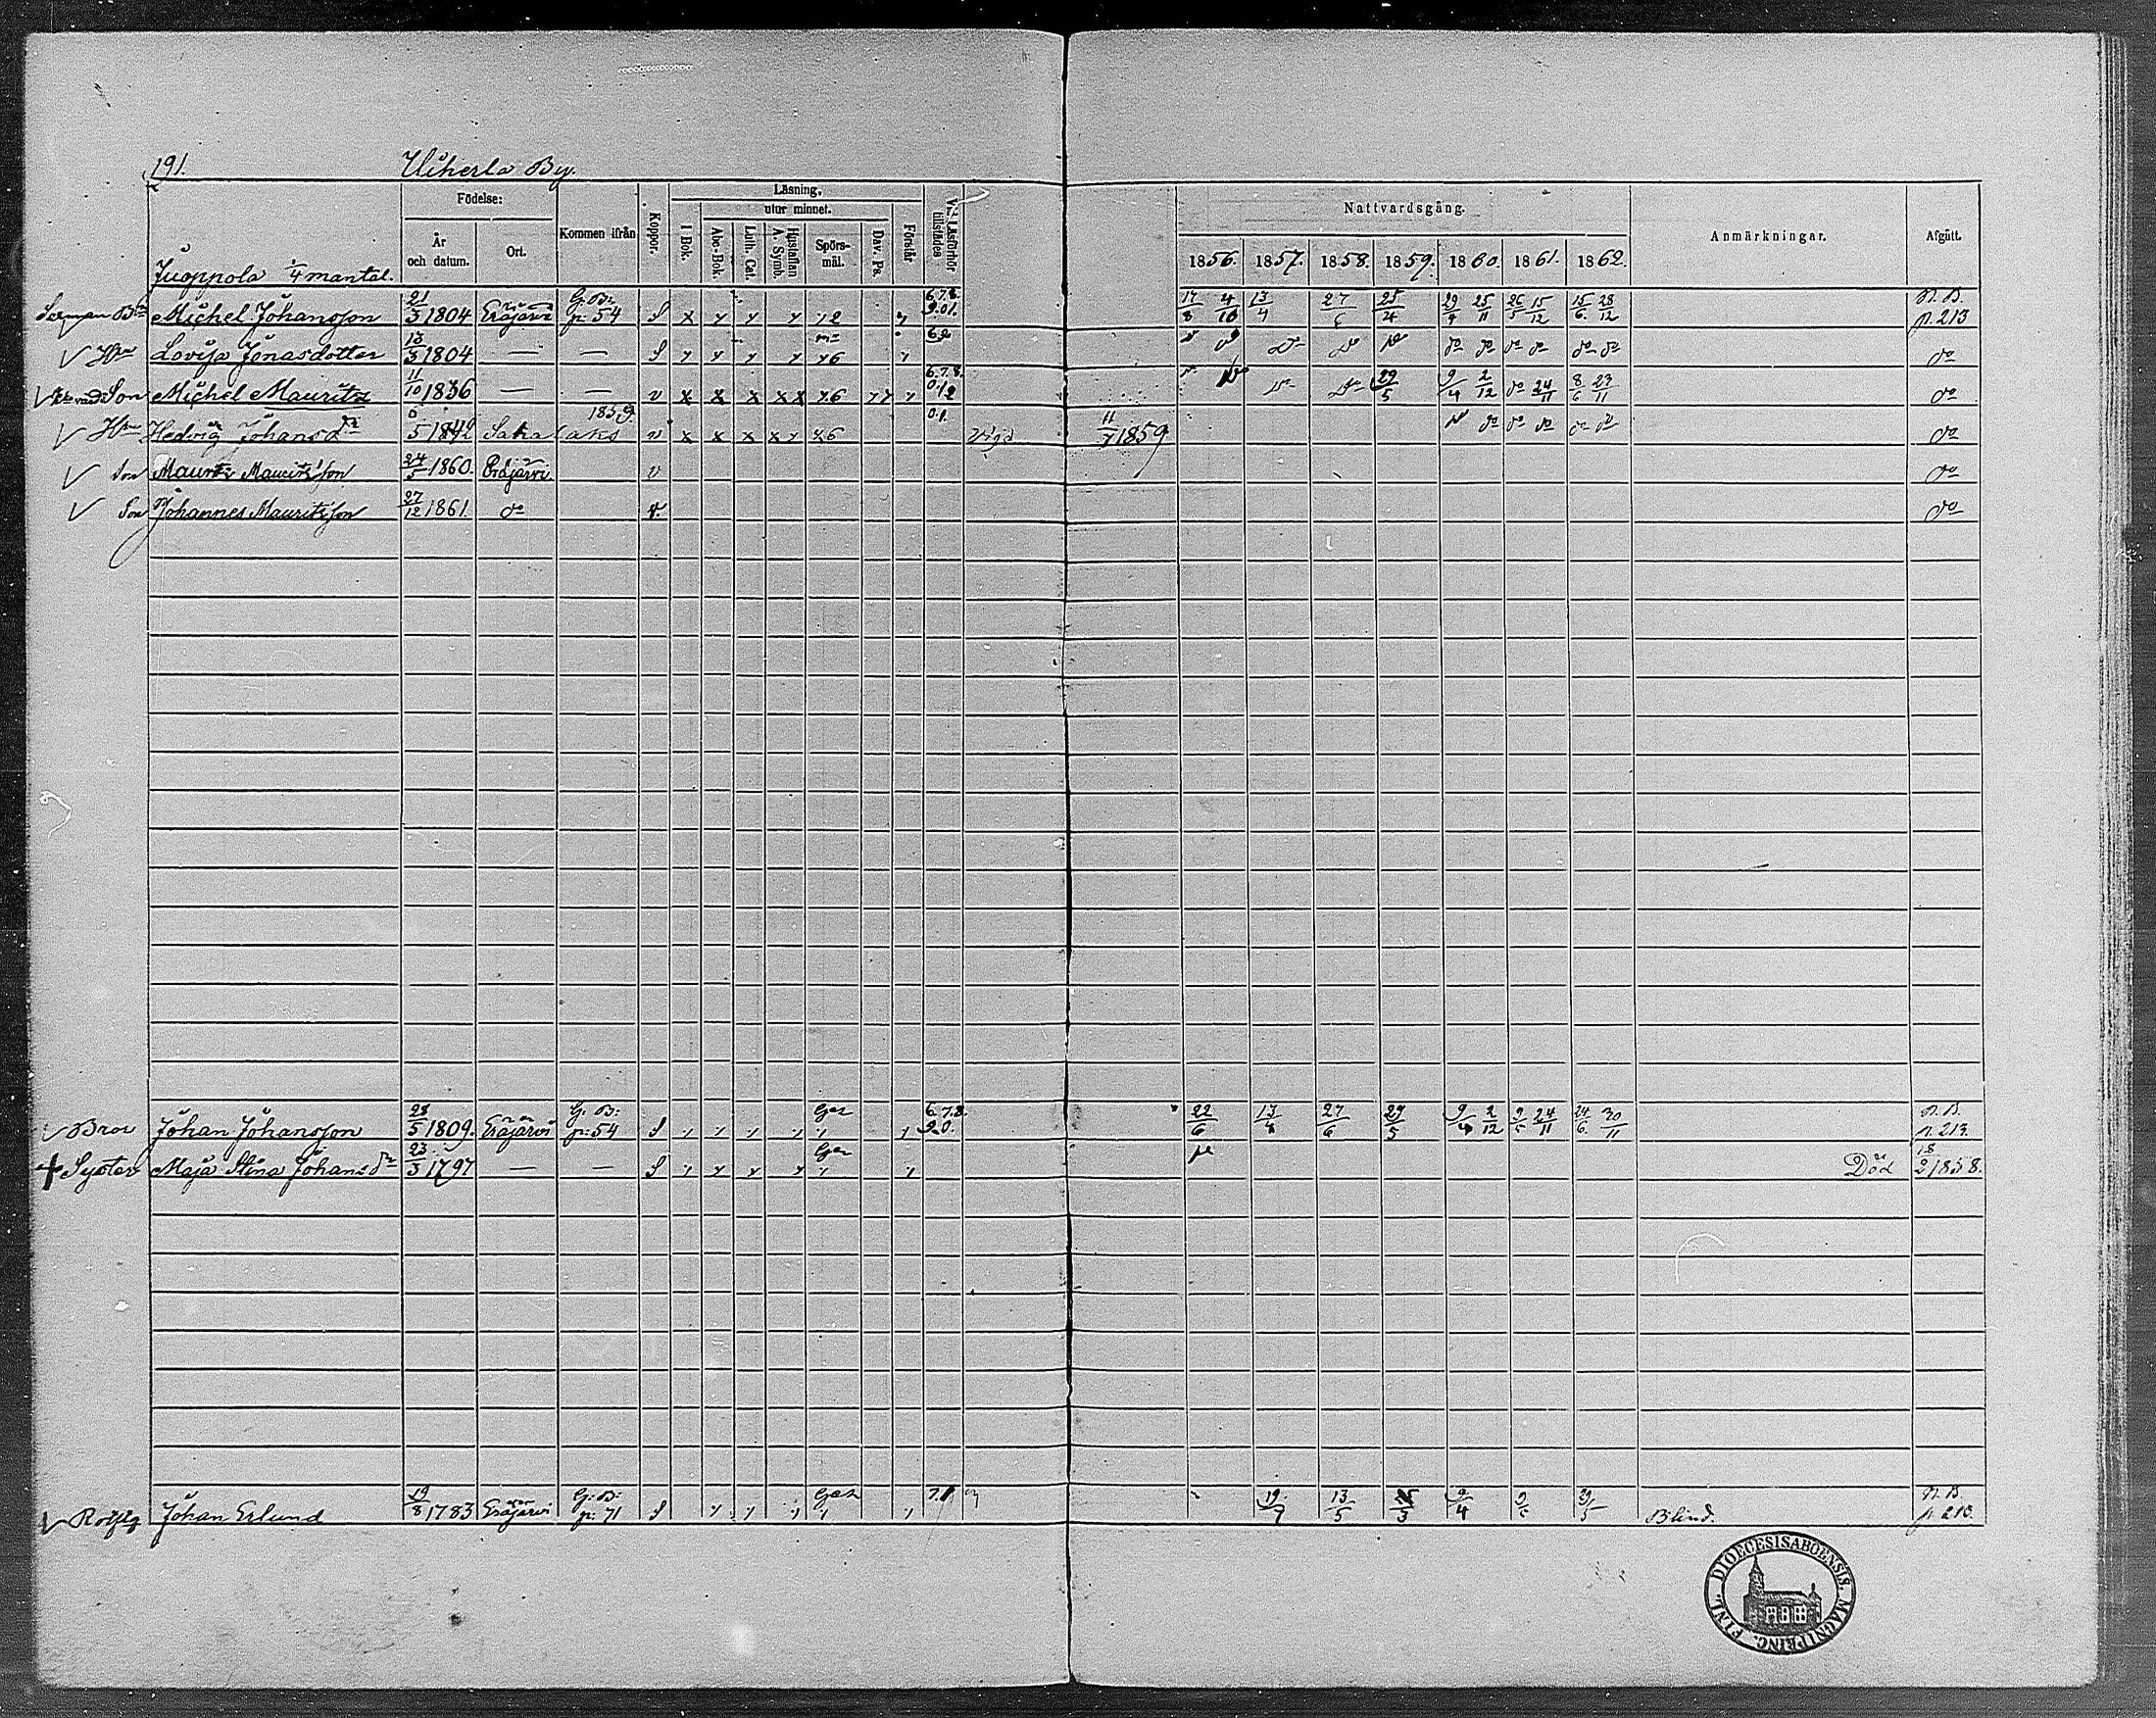 191. Uiherla By.
Födelse: Kommen ifrån Koppor. Läsning. utur minnet. Förstår Vid Läsförhör tillstädes Nattvardsgång. Anmärkningar. Afgått.
År och datum. Ort. I Bok. Abc-Bok. Luth. Cat. Hustaflan A. Symb. Spörsmål. Dav. Ps. 1856. 1857. 1858. 1859. 1860. 1861. 1862.
Juoppola 1/4 mantal.
Michel Johansson 21/3 1804 Eräjärvi G: B: p: 54 S x y y y y 6.7.8. 9.01. 17/8 4/10 13/4 27/6 25/4 29/4 25/11 26/5 15/12 15/6 28/12 N.B. p. 213
Hru Lovisa Jonasdotter 13/3 1804 — — S y y y y 6 do do do do do do do do
Son Michel Mauritz 11/10 1836 — — v x x x x x 6 y y y 6.7.8. 0.12 do do 29/5 9/4 2/12 do 24/11 8/6 23/11 do
Hru Hedvig Johansdr 5 1842 Sahalaks 1859. v x x x x y 6 0.1. vigd 11/7 1859 do do do do do do
Son Mauritz Mauritsson 24/5 1860. Eräjärvi v do
Son Johannes Mauritsson 27/12 1861 do v. do
Bror Johan Johansson 28/5 1809. Eräjärvi G: B: p: 54 S 6.7.8. 9.0. 22/6 13/4 27/6 29/5 9/4 2/12 9/5 24/11 24/6 30/11 N.B. p. 213.
Syster Maja Stina Johansdr 23/3 1797 — — S Död 18/2 1858.
Johan Erlund 19/8 1783 Eräjärvi G: B: p: 71 S 19/7 13/5 25/3 9/4 Blind. N.B. p. 213.
DIOECESIS ABOENSIS. MAGNI PRINC. FINL.